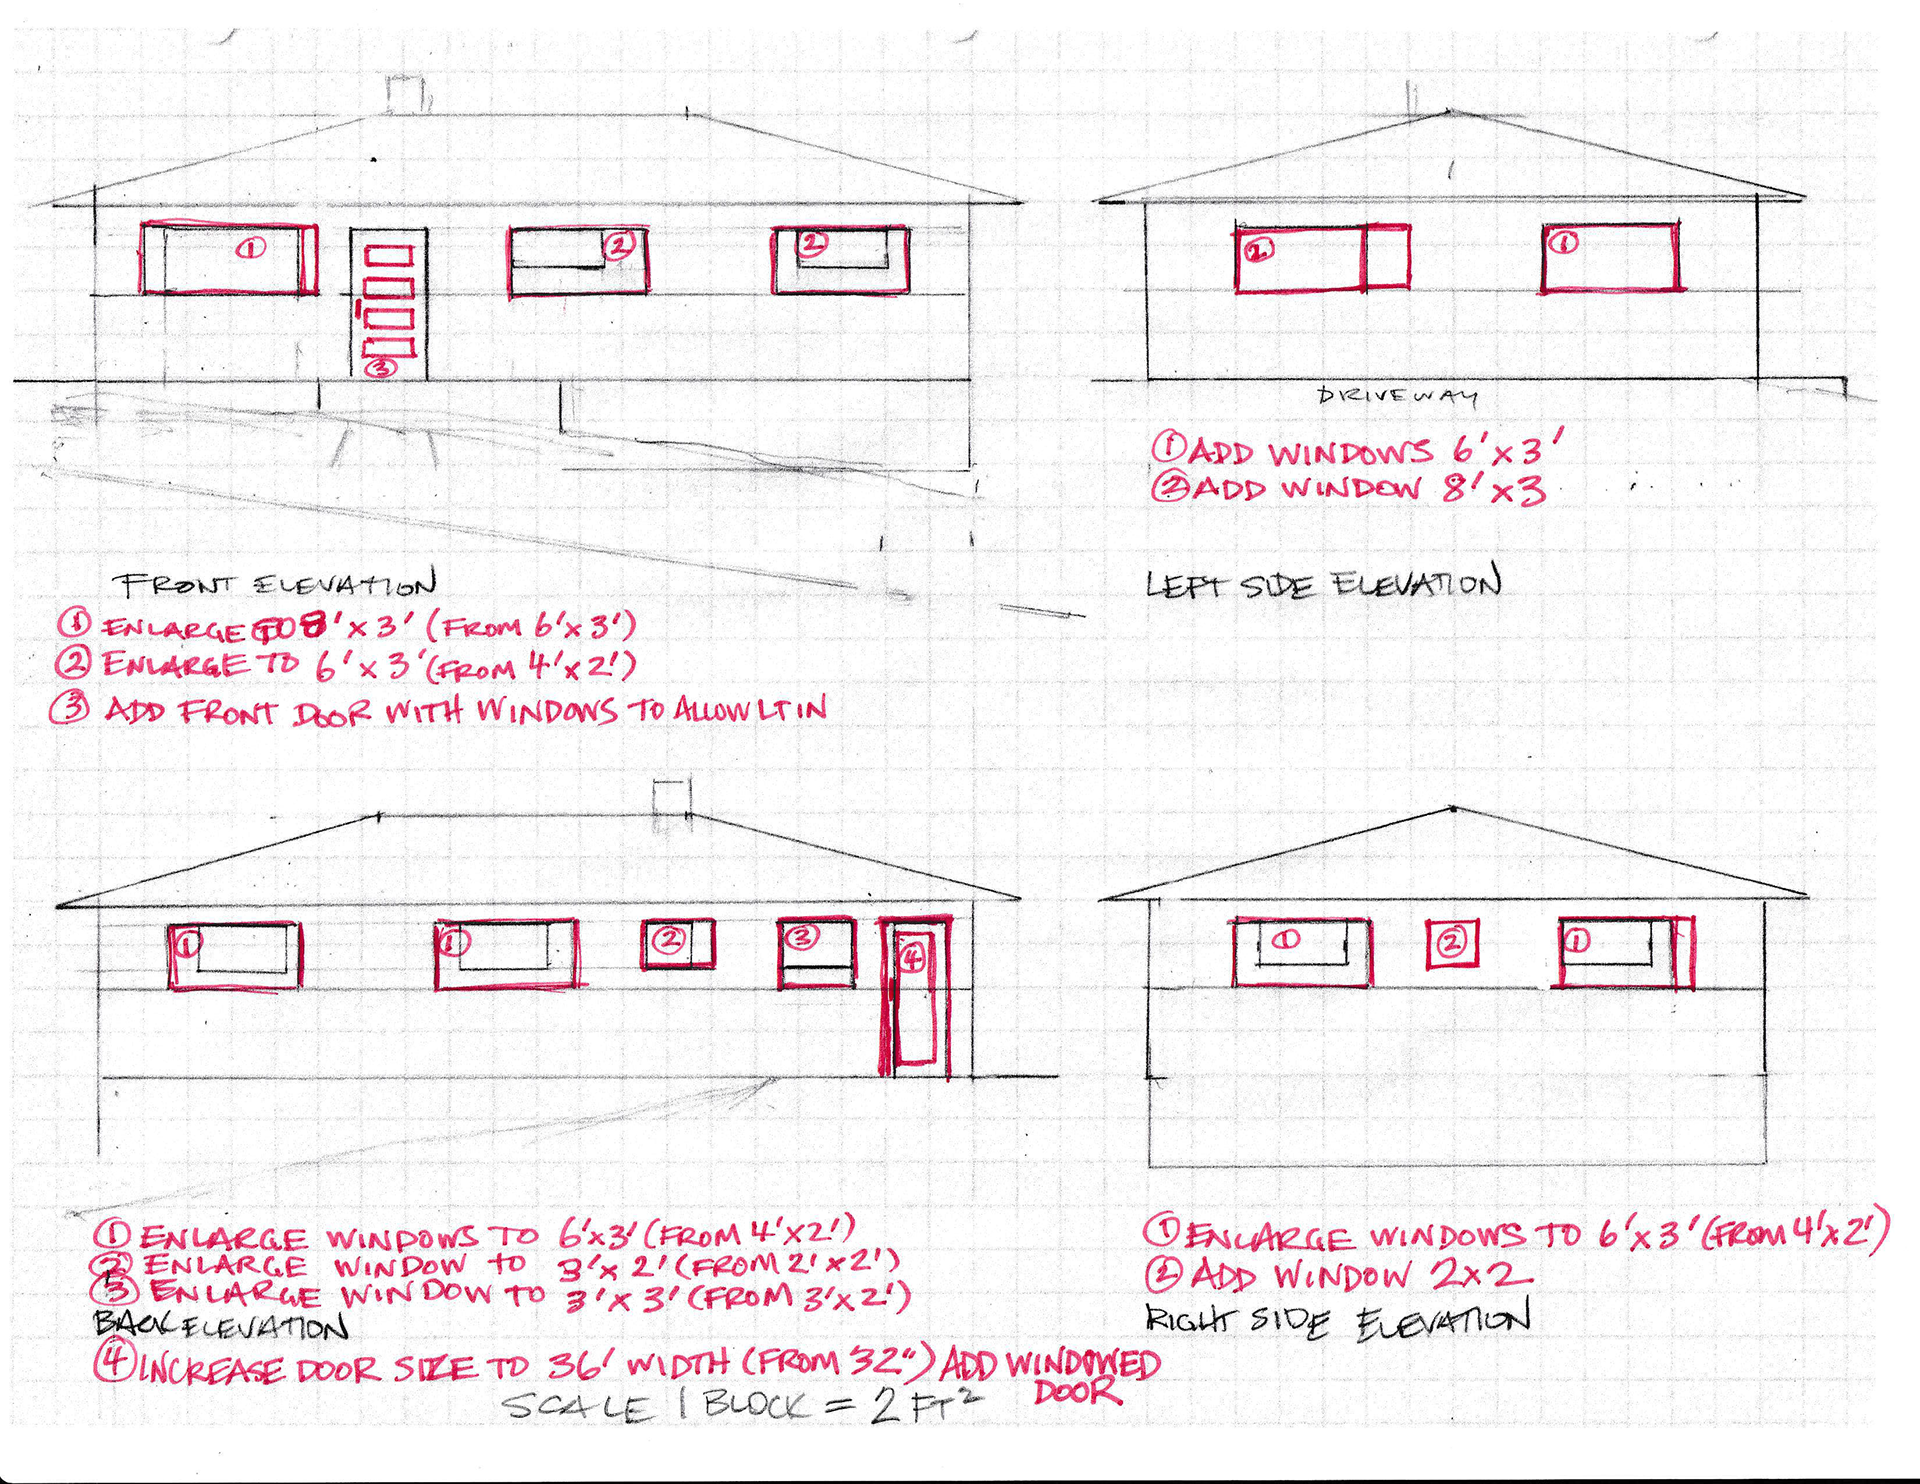 1
3
2
2
2
1
DRIVEWAY
① ADD WINDOWS 6' x 3'
② ADD WINDOW 8' x 3
FRONT ELEVATION
① ENLARGE TO 8' x 3' (FROM 6' x 3')
② ENLARGE TO 6' x 3' (FROM 4' x 2')
③ ADD FRONT DOOR WITH WINDOWS TO ALLOW LT IN
LEFT SIDE ELEVATION
1
1
2
3
4
1
2
1
① ENLARGE WINDOWS TO 6'x3' (FROM 4'x2')
② ENLARGE WINDOW TO 3'x 2' (FROM 2'x2')
③ ENLARGE WINDOW TO 3'x 3' (FROM 3'x2')
BACK ELEVATION
④ INCREASE DOOR SIZE TO 36' WIDTH (FROM 32") ADD WINDOWED
DOOR
SCALE 1 BLOCK = 2 FT²
① ENLARGE WINDOWS TO 6'x3' (FROM 4'x2')
② ADD WINDOW 2x2
RIGHT SIDE ELEVATION